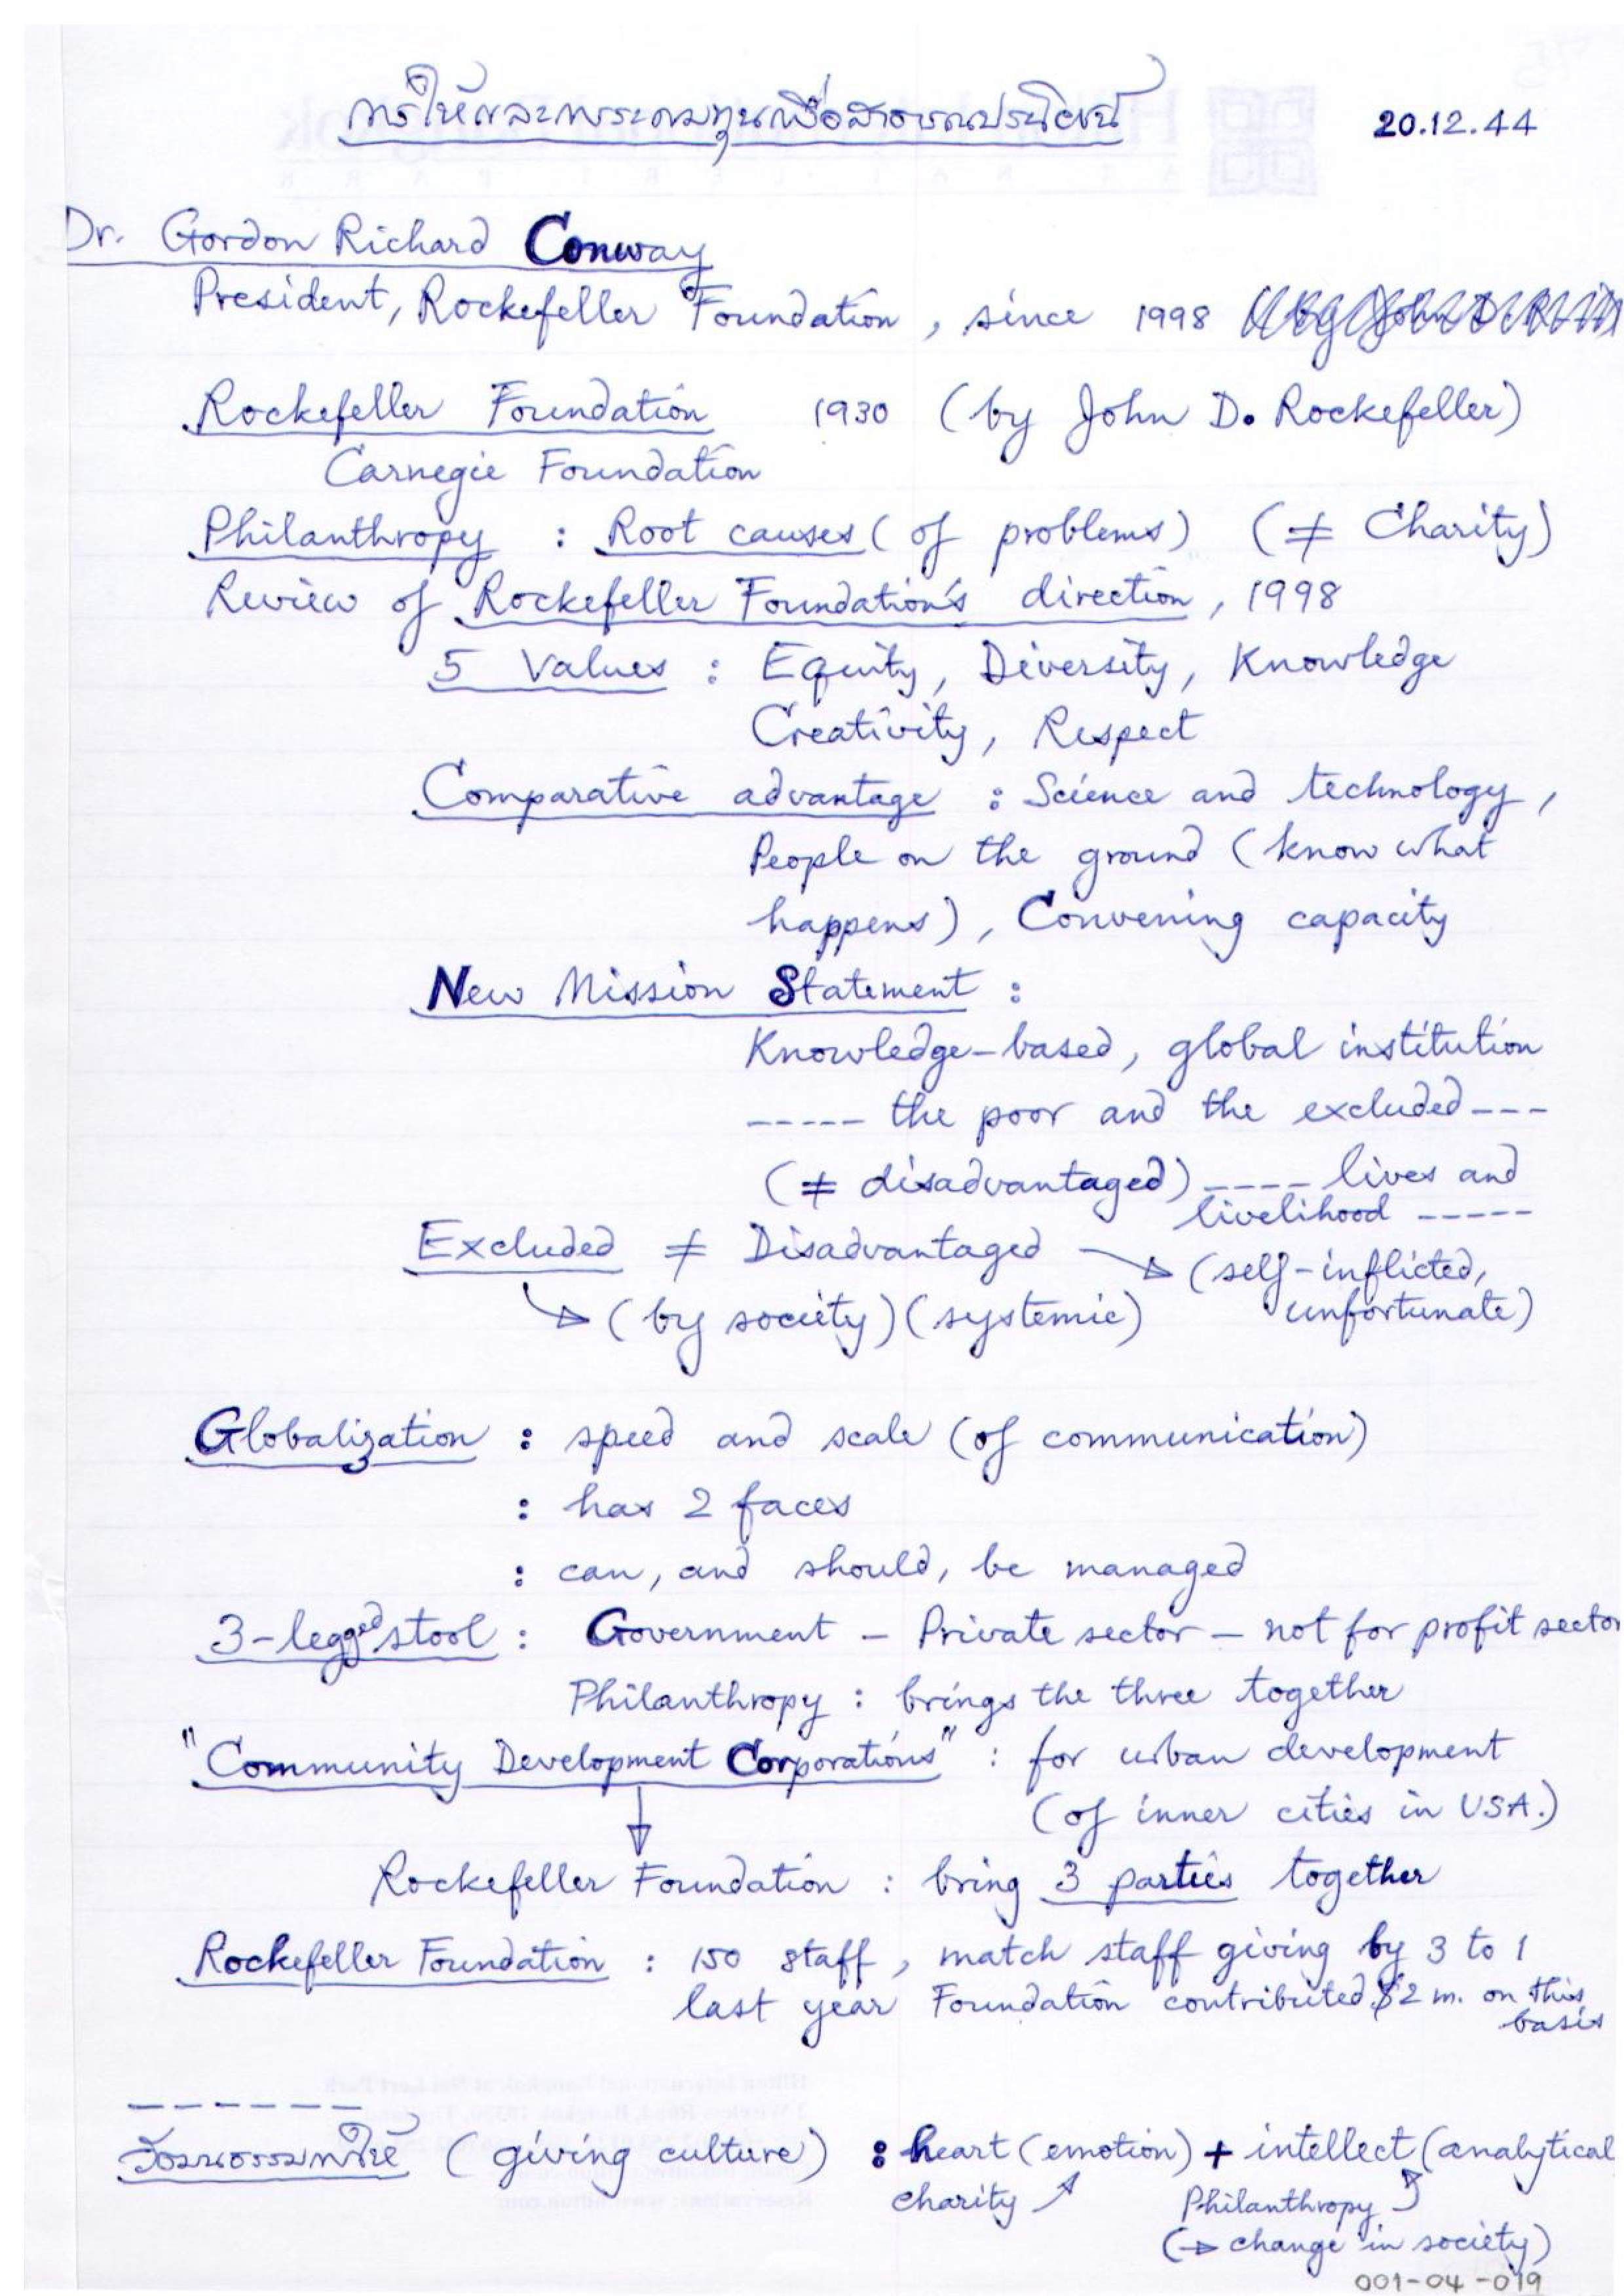 การให้และการระดมทุนเพื่อสาธารณประโยชน์
20.12.44
Dr. Gordon Richard Conway
President, Rockefeller Foundation, since 1998
Rockefeller Foundation 1930 (by John D. Rockefeller)
Carnegie Foundation
Philanthropy : Root causes (of problems) (≠ Charity)
Review of Rockefeller Foundation's direction, 1998
5 Values : Equity, Diversity, Knowledge
Creativity, Respect
Comparative advantage : Science and technology,
People on the ground (know what
happens), Convening capacity
New Mission Statement :
Knowledge-based, global institution
----- the poor and the excluded ---
(≠ disadvantaged) ---- lives and
livelihood -----
Excluded ≠ Disadvantaged → (self-inflicted,
unfortunate)
→ (by society) (systemic)
Globalization : speed and scale (of communication)
: has 2 faces
: can, and should, be managed
3-legged stool : Government – Private sector – not for profit sector
Philanthropy : brings the three together
"Community Development Corporations" : for urban development
(of inner cities in USA.)
↓
Rockefeller Foundation : bring 3 parties together
Rockefeller Foundation : 150 staff, match staff giving by 3 to 1
last year Foundation contributed $2 m. on this
basis
------
วัฒนธรรมการให้ (giving culture) : heart (emotion) + intellect (analytical
charity ↗ Philanthropy ↗
(→ change in society)
001-04-019